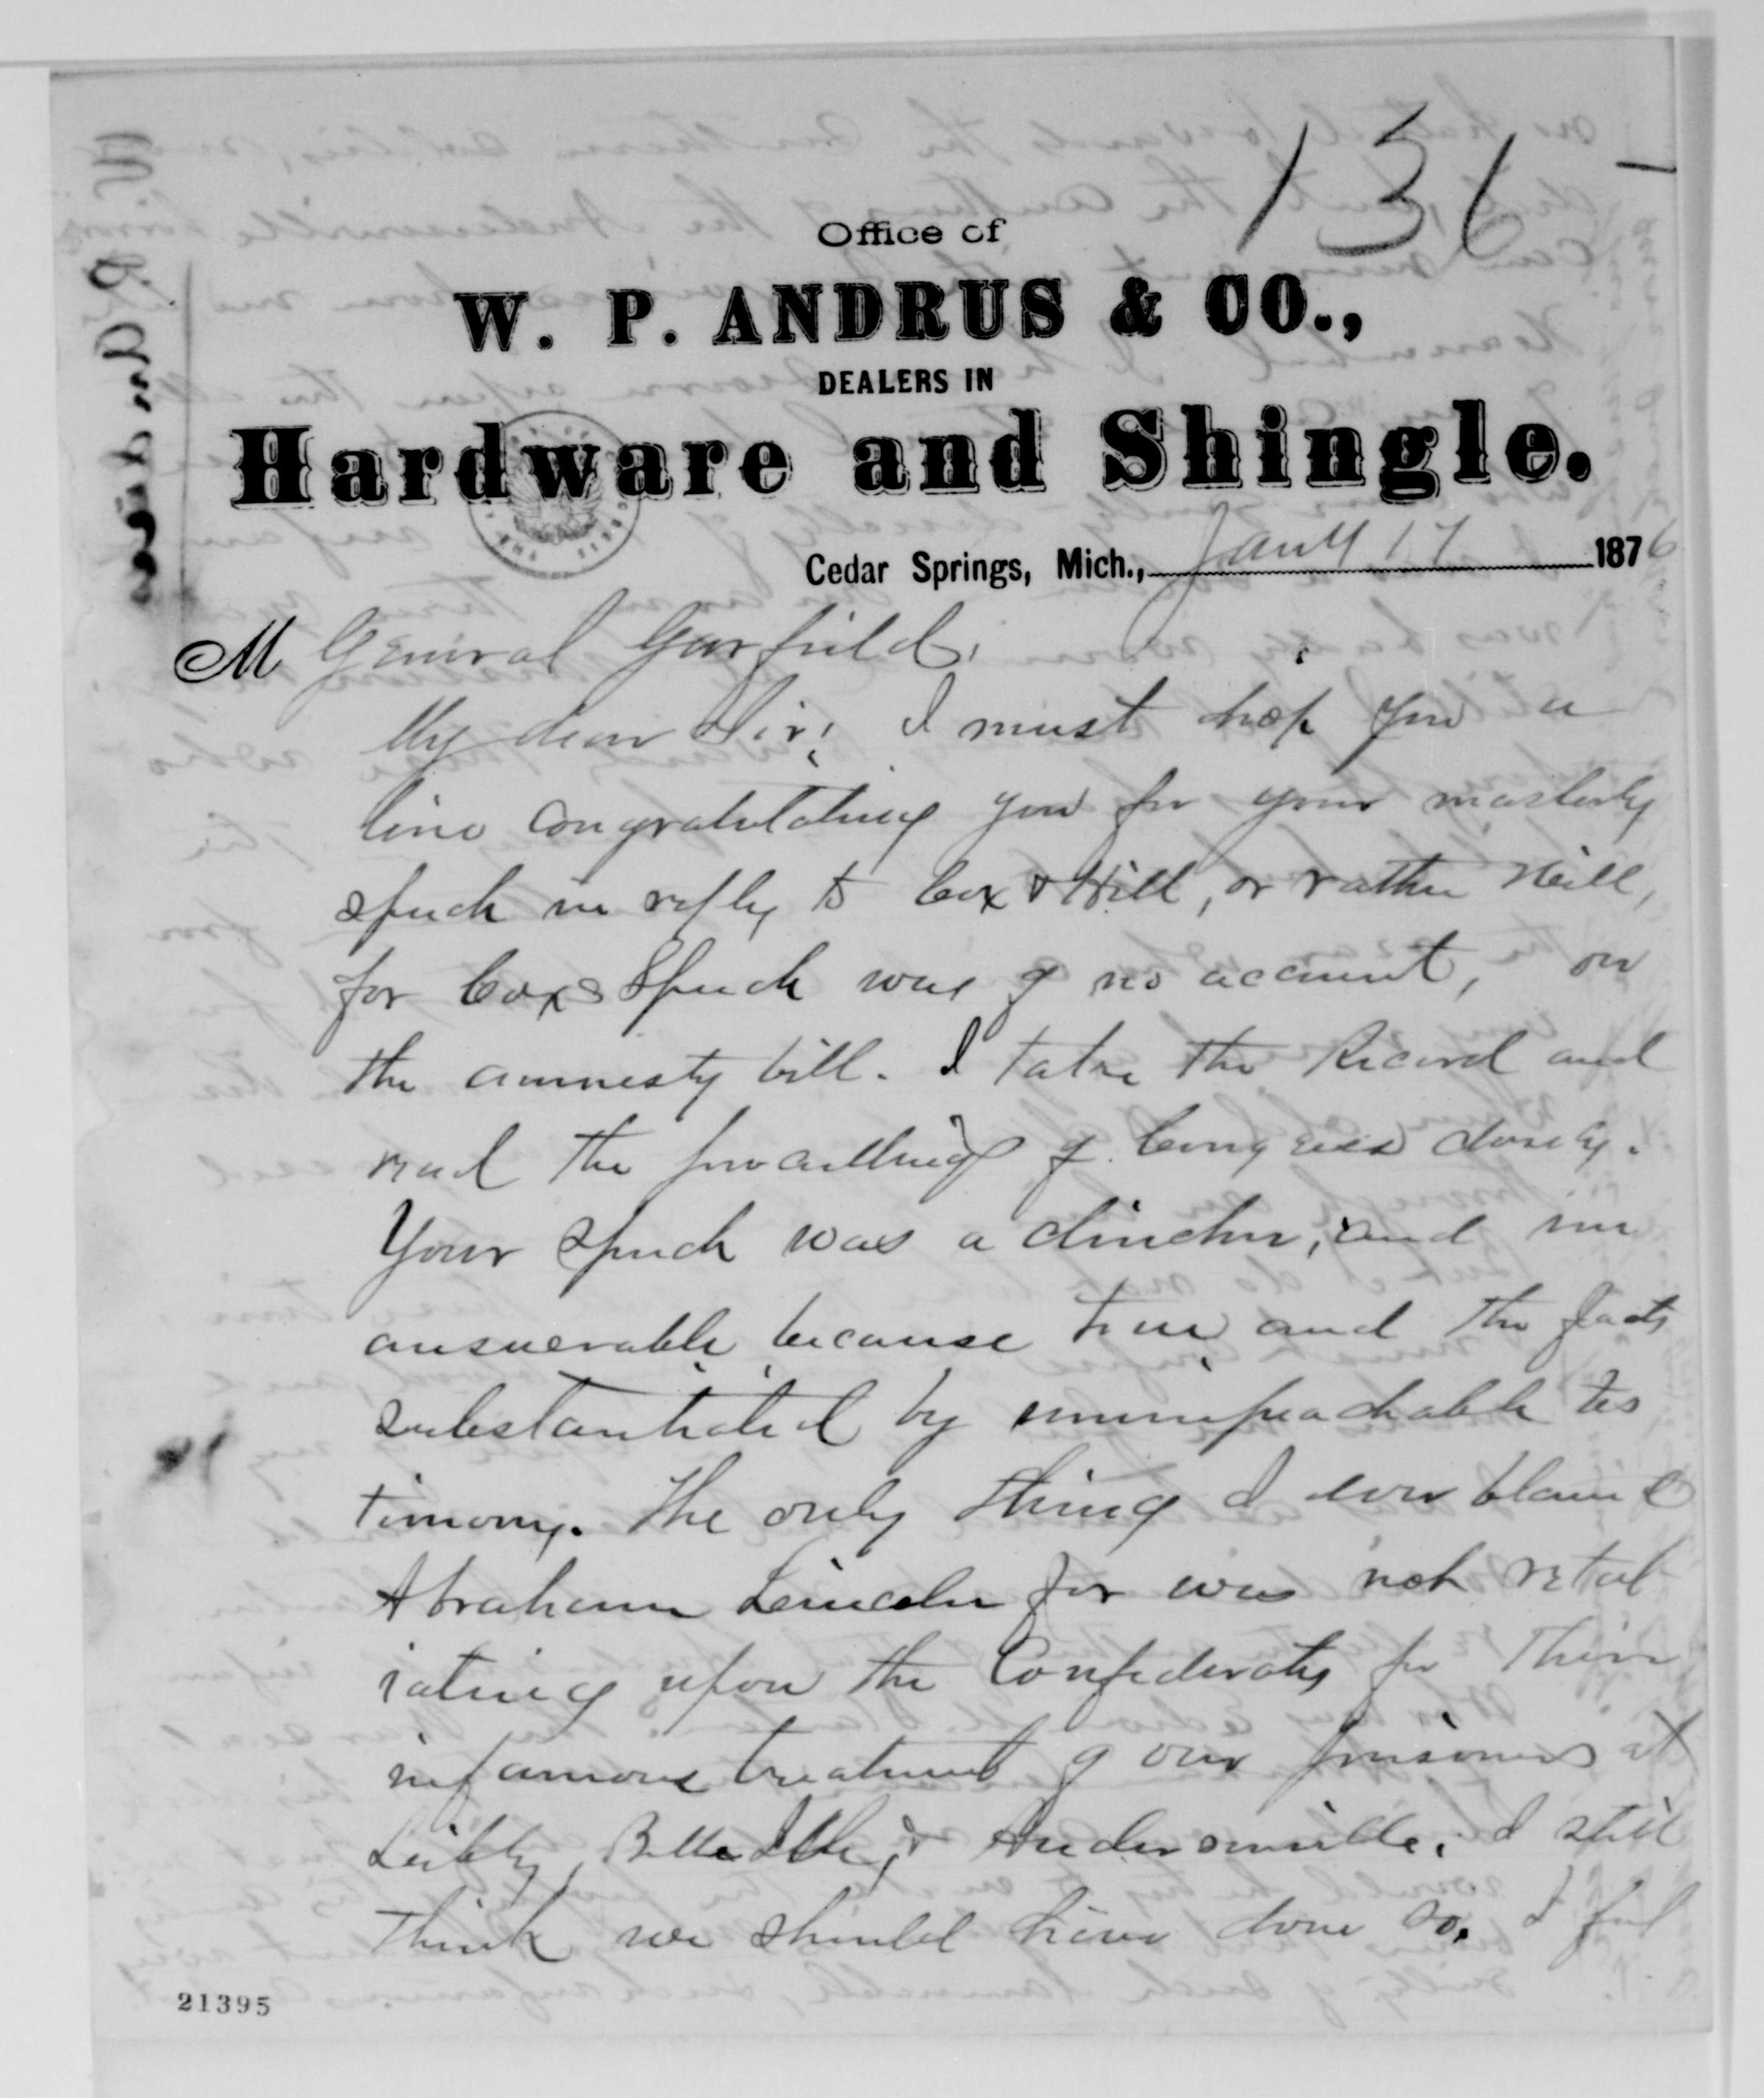 136
Office of
W. P. ANDRUS & CO.,
DEALERS IN
Hardware and Shingle.
Cedar Springs, Mich., Jany 17 1876
M General Garfield.
My dear Sir; I must drop you a
line congratulating you for your masterly
speech in reply to Cox & Hill, or rather Hill,
for Coxs Speech was of no account, on
the amnesty bill. I take the Record and
read the proceedings of Congress closely.
Your speech was a clincher, and un
answerable because true and the facts
substantiated by unimpeachable tes
timony. The only thing I ever blamed
Abraham Lincoln for was not retal
iating upon the Confederates for their
infamous treatment of our prisoners at
Libby, Belle Isle, & Andersonville. I still
think we should have done so. I feel
21395
W. P. Andrus